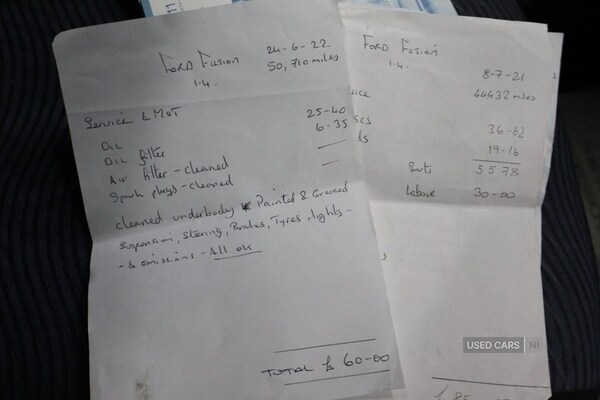 Ford Fusion 24-6-22
1.4. 50,710 miles
Service & MoT
Oil 25-40
Oil filter 6-35
Air filter - cleaned
Spark plugs - cleaned
cleaned underbody Painted & Greased
Suspension, Steering, Brakes, Tyres, lights -
- & emissions - All ok
TOTAL £ 60-00
Ford Fusion
1.4. 8-7-21
44432 miles
36-62
19-16
Parts 5578
Labour 30-00
USED CARS NI